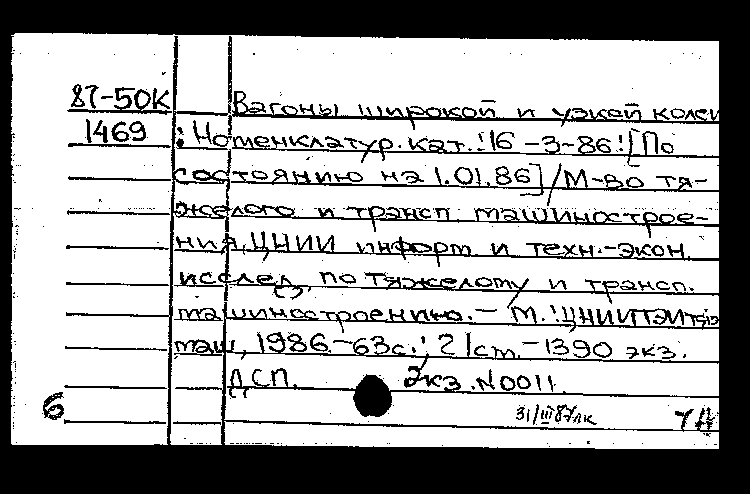 87-50К Вагоны широкой и узкой колеи
1469 : Номенклатур. кат. : 16-3-86 : [По
состоянию на 1.01.86] / М-во тя-
желого и трансп. машинострое-
ния, ЦНИИ информ. и техн.-экон.
исслед. по тяжелому и трансп.
машиностроению. - М. : ЦНИИТЭИтяж
маш, 1986. - 63с. ; 21см. - 1390 экз.
ДСП. Экз. N0011.
6 31/III 87лк